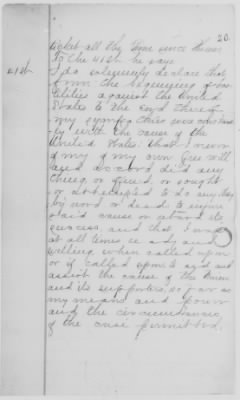 20.
ticket all the time since then
To the 41st he says
41st. I do solemnly declare that
from the beginning of hos-
tilities against the United
States to the end thereof
my sympathies were constant-
ly with the cause of the
United States: that I never
of my own free will
and accord did any
thing or offered or sought
or attempted to do anything
by word or deed to injure
said cause or retard its
success, and that I was
at all times ready and
willing when called upon
or if called upon to aid and
assist the cause of the Union
and its supporters, so far as
my means and power
and the circumstances
of the case permitted.